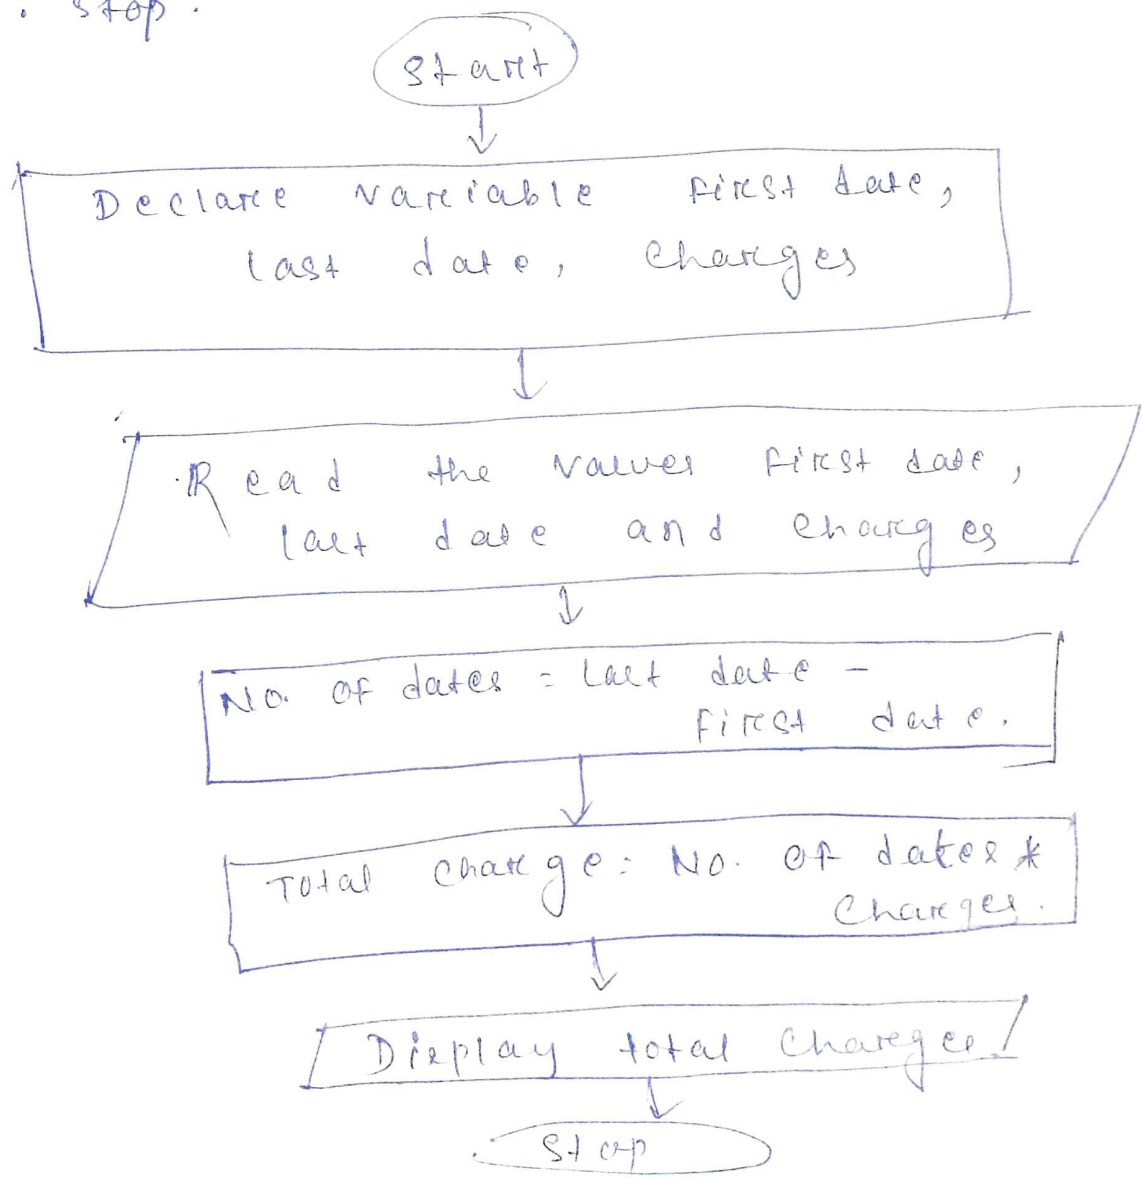 . Stop.
Start
Declare variable first date,
last date, charges
Read the values first date,
last date and charges
No. of dates = last date -
first date.
Total charge = No. of dates *
charges.
Display total charges
Stop